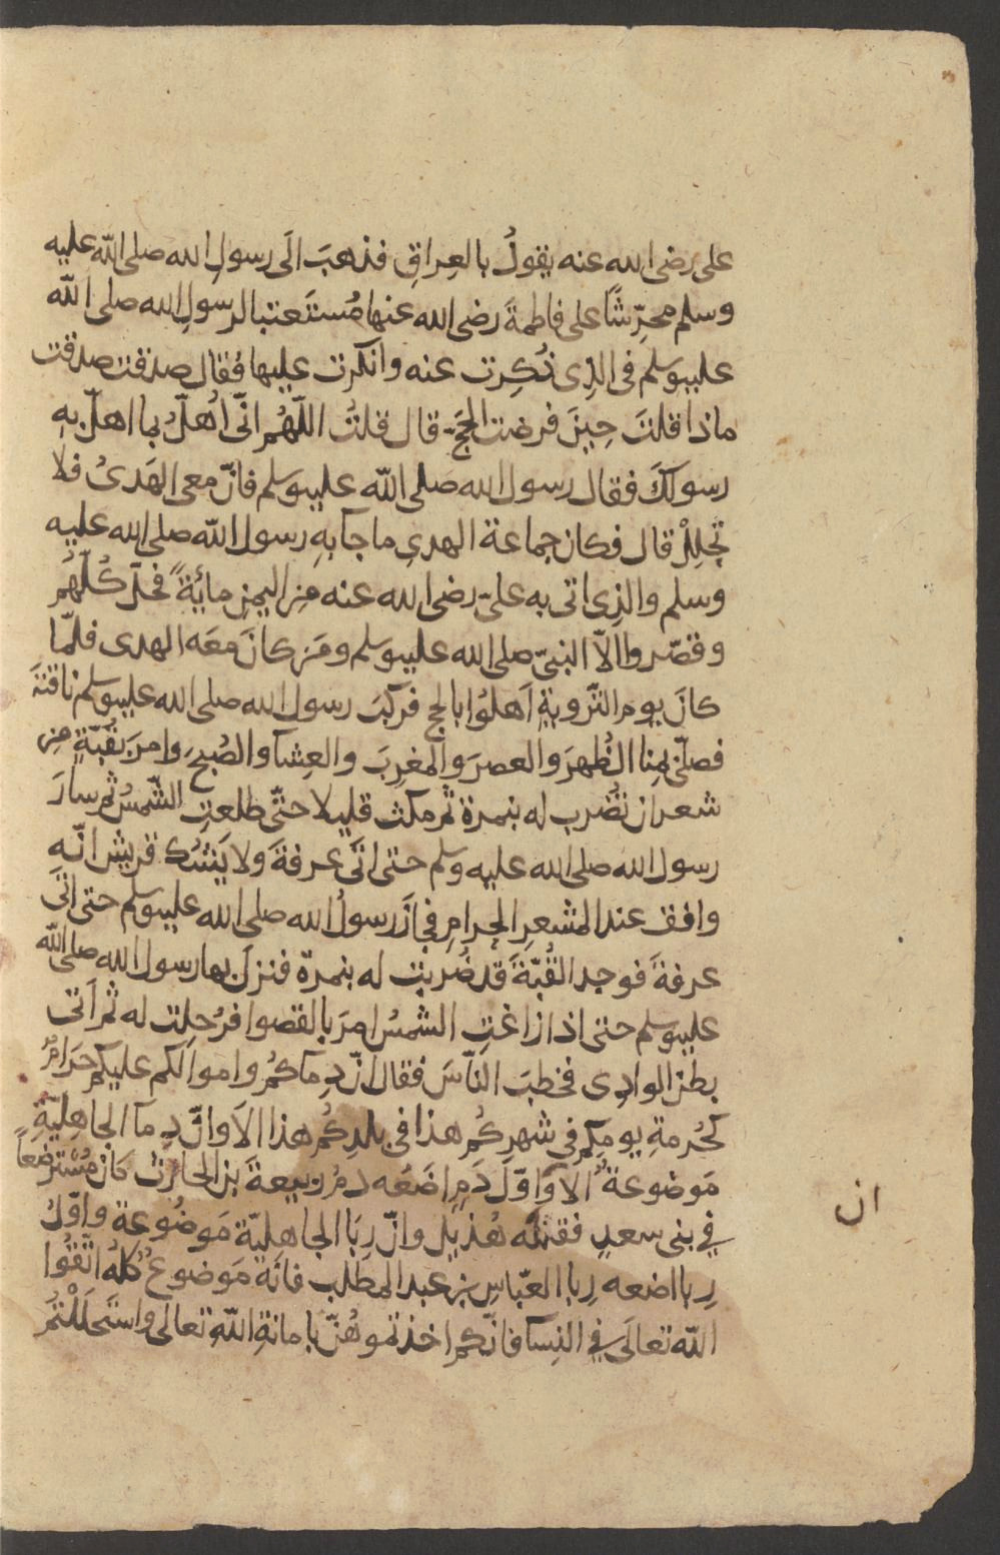 على رضى الله عنه يقولُ بالعِراقِ فذهبَ الَى رسولِ الله صلى اللّه عليه
وسلم محرِّشًا على فاطمةَ رضى الله عنها مُستَعتبا لرسولِ الله صلى اللّه
عليه وسلم فى الذِى ذُكِرت عنه وانكرت عليها فُقال صدقت صدقت
ماذا قلتَ حِينَ فرضت الحَجّ قال قلتُ اللّهُم انّى اُهلّ بما اهلّ بهِ
رسولكَ فقال رسول الله صلى اللّه عليه وسلم فانّ معى الهَدىُ فلا
تحلِلْ قال فكان جماعة الهدىِ ما جآ بهِ رسول اللّه صلى الله عليه
وسلم والذِى اتى به علىّ رضى الله عنه مِن اليمنِ مائةً فحلّ كُلّهُم
وقصّروا الاّ النبىّ صلى الله عليه وسلم ومَن كانَ معَه الهدى فلمّا
كانَ يومِ التّرويةِ اَهلوُا بالحجِ فركبَ رسول الله صلى الله عليه وسلم ناقتهَ
فصلّى بمِنا الظُهرَ والعصرَ والمغرِبَ والعِشآ والصُبحَ وامرَ بقُبّةٍ مِن
شعر ان تضُرب له بنمرة ثم مكث قليلا حتّى طلعتِ الشّمسُ ثم سارَ
رسول الله صلى الله عليه وسلم حتى اتَى عرفةَ ولا يَشُك قريش انّه
وافق عند المشعرِ الحرامِ فجازَ رسولُ الله صلى الله عليه وسلم حتى اتَى
عرفةَ فوجد القُبّةَ قد ضُربت له بنمرّة فنزلَ بها رسول الله صلى اللّه
عليه وسلم حتى اذا زاغتِ الشمسُ امرَ بالقصوا فرُحِلت له ثم اَتى
بطن الوادِى فخطبَ النّاسَ فقال انّ دِمآكُم واموالكم عليكم حَرَامٌ
كحُرمةِ يومِكم فى شهرِكُم هذا فى بلدِكُم هذا الآ وانّ دِمآ الجاهِليّةِ
مَوضوعةٌ الآ وَاوّلَ دَمٍ اضَعُه دمُ ربيعةَ بن الحارث كان مُسْترضعاً
فى بنى سعدٍ فقتله هُذيل وانّ رِبَا الجاهِليّة مَوضُوعة واوّلُ
رِبا اضعه رِبا العبّاسِ بن عبد المطّلب فانّه مَوضوعٌ كُلهُ اتّقُوا
اللّه تعالَى فى النِسآ فانّكم اخذتموهُنّ بامانةِ اللّهِ تعالى واستَحلَلْتُم
ان